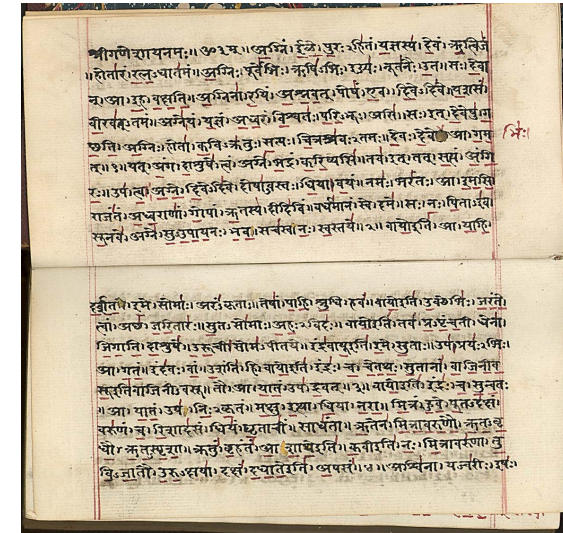 श्रीगणेशायनमः॥ॐ३म्॥ अग्निं। ईळे। पुरःऽहितं। यज्ञस्य। देवं। ऋत्विजं
।होतारं। रत्नऽधातमं। अग्निः। पूर्वेभिः। ऋषिऽभिः। ईड्यः। नूतनैः। उत। सः। देवा
न्। आ। इह। वक्षति। अग्निना। रयिं। अश्नवत्। पोषं। एव। दिवेऽदिवे। यशसं।
वीरवत्ऽतमं। अग्ने। यं। यज्ञं। अध्वरं। विश्वतः। परिऽभूः। असि। सः। इत्। देवेषु। ग
च्छति। अग्निः। होता। कविऽक्रतुः। सत्यः। चित्रश्रवःऽतमः। देवः। देवे आ। गम भिः।
त्॥१॥ यत्। अंग। दाशुषे। त्वं। अग्ने। भद्रं। करिष्यसि। तव। इत्। तत्। सत्यं। अंगि
रः। उप। त्वा। अग्ने। दिवेऽदिवे। दोषाऽवस्तः। धिया। वयं। नमः। भरंतः। आ। इमसि।
राजंतं। अध्वराणां। गोपां। ऋतस्य। दीदिविं। वर्धमानं। स्वे। दमे। सः। नः। पिताऽइव
सूनवे। अग्ने। सुऽउपायनः। भव। सचस्व। नः। स्वस्तये॥२॥ वायो इति। आ। याहि।
दर्शत। इमे। सोमाः। अरंऽकृताः। तेषां। पाहि। श्रुधि। हवं। वायो इति। उक्थेभिः। जरंते
त्वां। अच्छ। जरितारः। सुतऽसोमाः। अहःऽविदः। वायो इति। तव। प्रऽपृंचती। धेना
जिगाति। दाशुषे। उरूची। सोमऽपीतये। इंद्रवायू इति। इमे। सुताः। उप। प्रयःऽभिः।
आ। गतं। इंदवः। वां। उशंति। हि। वायो इति। इंद्रः। च। चेतथः। सुतानां। वाजिनीव
सू इति वाजिनीऽवसू। तौ। आ। यातं। उप। द्रवत्॥३॥ वायो इति। इंद्रः। च। सुन्वतः
।आ। यातं। उप। निःऽकृतं। मक्षु। इत्था। धिया। नरा। मित्रं। हुवे। पूतऽदक्षं
वरुणं। च। रिशादसं। धियं। घृताचीं। साधंता। ऋतेन। मित्रावरुणौ। ऋतऽवृ
धौ। ऋतऽस्पृशा। क्रतुं। बृहंतं। आशाथे इति। कवी इति। नः। मित्रावरुणा। तु
विऽजातौ। उरुऽक्षया। दक्षं। दधाते इति। अपसं॥४॥ अश्विना। यज्वरीः। इषः।